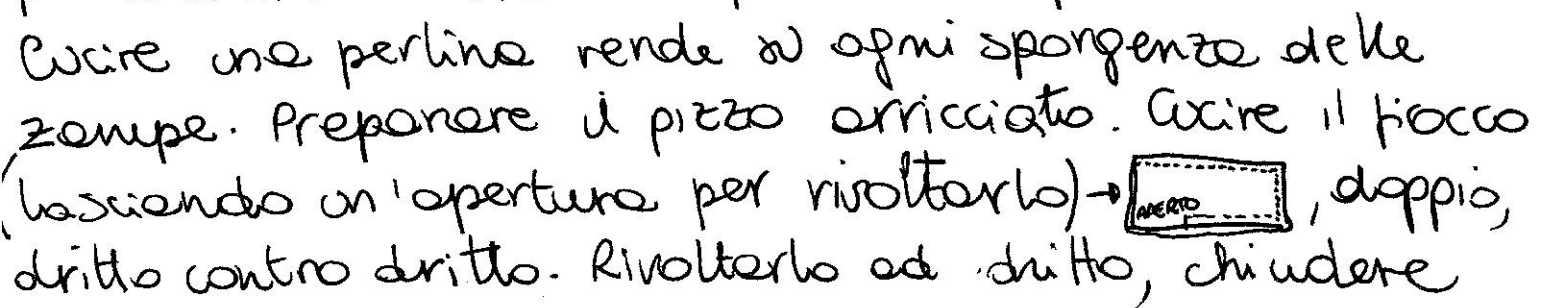 Cucire una perlina rende su ogni sporgenza delle
zampe. Preparare il pizzo arricciato. Cucire il fiocco
(lasciando un'apertura per rivoltarlo) → APERTO, doppio,
dritto contro dritto. Rivoltarlo ad dritto, chiudere